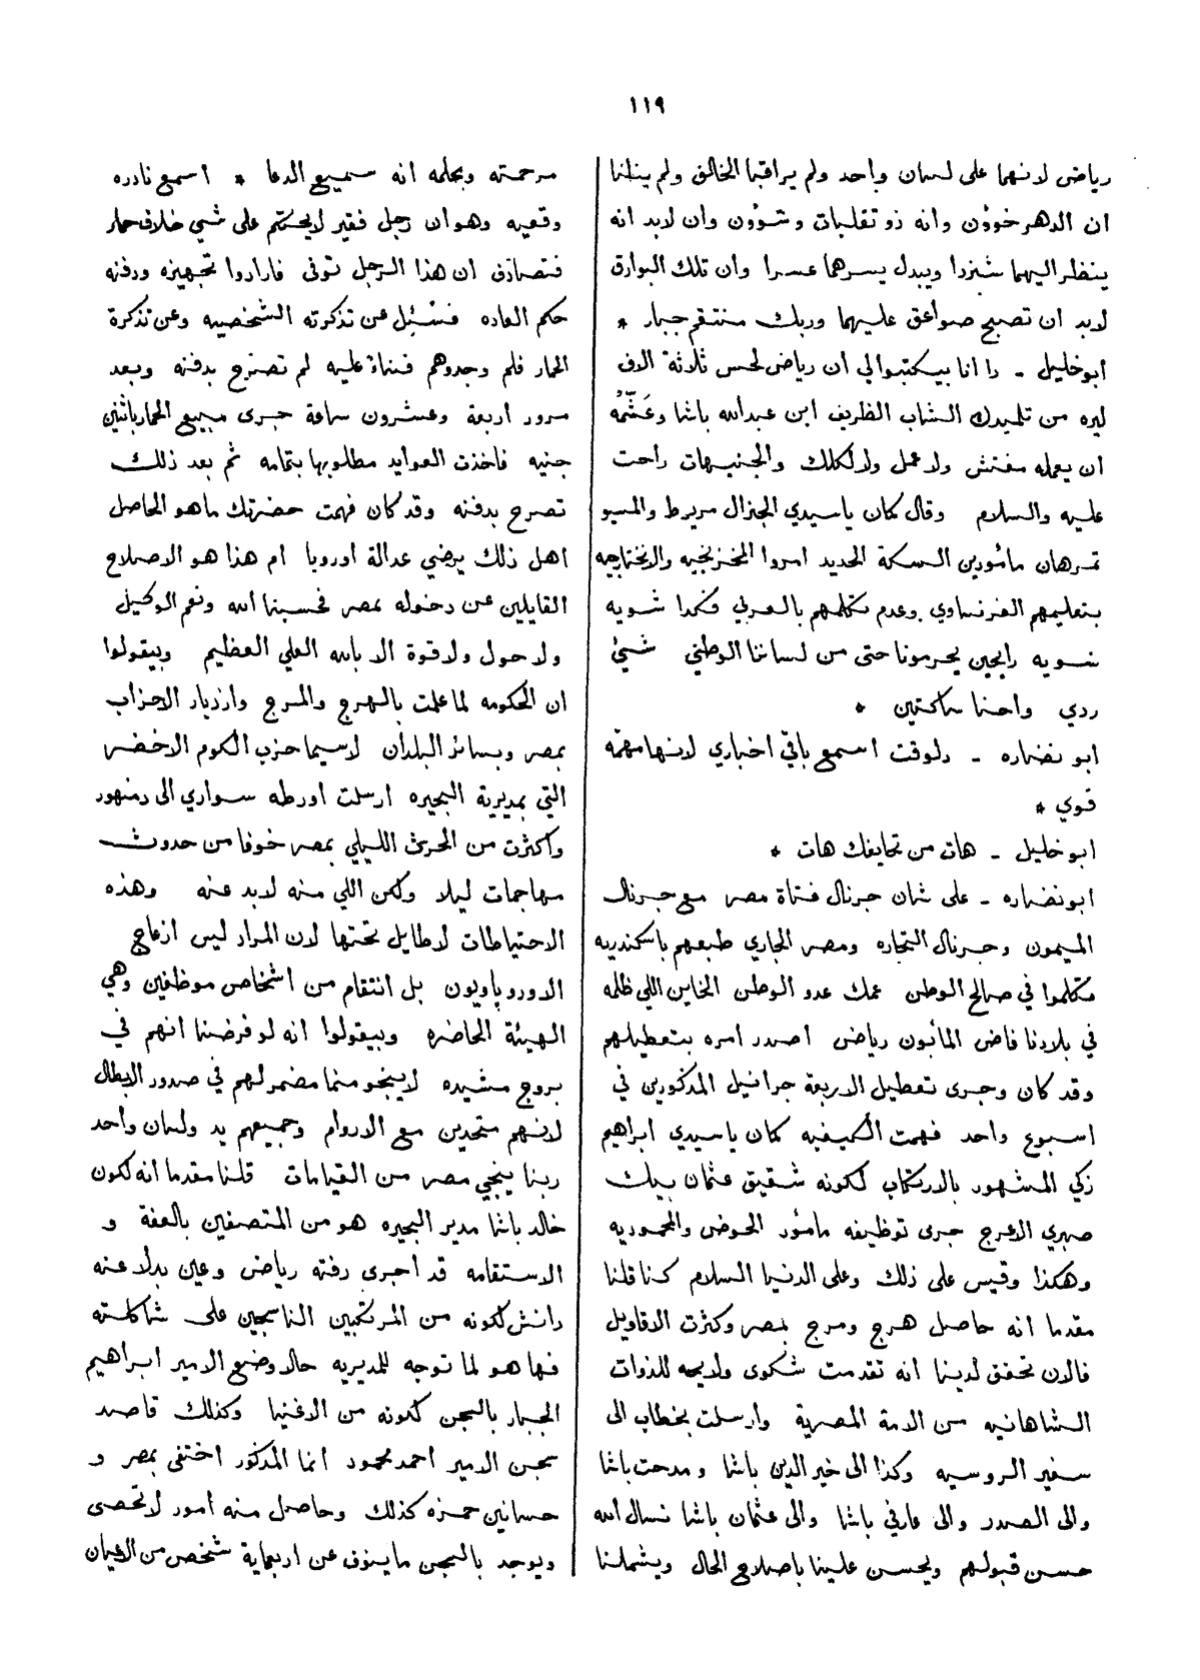 ١١٩
رياض لانهما على لسان واحد ولم يراقبا الخالق ولم يظنا
ان الدهر خوؤن وانه ذو تقلبات وشوؤن وان لابد انه
ينظر اليهما شنزرا ويبدل يسرهما عسرا وان تلك البوارق
لابد ان تصبح صواعق عليهما وربك منتقم جبار *
ابو خليل ـ دا انا بيكتبوا لي ان رياض لحس ثلاثة الاف
ليره من تلميدك الشاب الظريف ابن عبدالله باشا وعَشّمُه
ان يعمله مفتش ولا عمل ولا كلك والجنيهات راحت
عليه والسلام وقال كمان ياسيدي الجنرال مريرط والمسيو
تمرهان مأمورين السكة الحديد امروا المخزنجيه والانختاجيه
بتعليمهم الفرنساوي وعدم تكلمهم بالعربي فكدا شويه
شويه رايحين يحرمونا حتى من لساننا الوطني شئ
ردي واحنا ساكتين *
ابو نضاره ـ دلوقت اسمع باقي اخباري لانها مهمّه
قوي *
ابو خليل ـ هات من تحايفك هات *
ابو نضاره ـ على شان جرنال فتاة مصر مع جرنال
الميمون وجرنال التجاره ومصر الجاري طبعهم باسكندريه
متكلموا في صالح الوطن عمك عدو الوطن الخاين اللي ظلمه
في بلادنا فاض المأبون رياض اصدر امره بتعطيلهم
وقد كان وجرى تعطيل الاربعة جرانيل المذكورين في
اسبوع واحد فهمت الكيفيه كمان ياسيدي ابراهيم
زكي المشهور بالارتكاب لكونه شقيق عثمان بيك
صبري الاعرج جرى توظيفه مأمور الحوض والمحموديه
وهكذا وقيس على ذلك وعلى الدنيا السلام كنا قلنا
مقدما انه حاصل هرج ومرج بمصر وكثرت الاقاويل
فالان تحقق لدينا انه تقدمت شكوى ولايحه للذوات
الشاهانيه من الامة المصرية وارسلت بخطاب الى
سفير الروسيه وكذا الى خير الدين باشا ومدحت باشا
والى الصدر والى عارفي باشا والى عثمان باشا نسال الله
حسن قبولهم ويحسن علينا باصلاح الحال ويشملنا
مرحمته وبحلمه انه سميع الدعا * اسمع نادره
وقعيه وهو ان رجل فقير لا يحتكم على شي خلاف حمار
فتصادف ان هذا الرجل توفى فارادوا تجهيزه ودفنه
حكم العاده فسُئِل عن تذكرته الشخصيه وعن تذكرة
الحمار فلم وجدوهم فبناءً عليه لم تصرّح بدفنه وبعد
مرور اربعة وعشرون ساعة جرى مبيع الحمار باثنين
جنيه فاخذت العوايد مطلوبها بتمامه ثم بعد ذلك
تصرح بدفنه وقد كان فهمت حضرتك ما هو الحاصل
اهل ذلك يرضي عدالة اوروبا ام هذا هو الاصلاح
القايلين عن دخوله بمصر فحسبنا الله ونعم الوكيل
ولا حول ولا قوة الا بالله العلي العظيم وبيقولوا
ان الحكومه لما علمت بالهرج والمرج وازدياد الاحزاب
بمصر وبسائر البلدان لاسيما حزب الكوم الاخضر
التي بمديرية البحيره ارسلت اورطه سواري الى دمنهور
واكثرت من الحرس الليلي بمصر خوفا من حدوث
مهاجمات ليلا ولكن اللي منه لابد عنه وهذه
الاحتياطات لاطايل تحتها لان المراد ليس ازعاج
الاوروپاويون بل انتقام من اشخاص موظفين وهي
الهيئة الحاضره وبيقولوا انه لو فرضنا انهم في
بروج مشيده لا ينجو منا مضمر لهم في صدور الابطال
لانهم متحدين مع الاروام وجميعهم يد ولسان واحد
ربنا ينجي مصر من القيامات قلنا مقدما انه لكون
خالد باشا مدير البحيره هو من المتصفين بالعفة و
الاستقامه قد اجرى رفته رياض وعين بدلا عنه
دانش لكونه من المرتكبين الناسجين على شاكلته
فها هو لما توجه للمديريه حالا وضع الامير ابراهيم
الجبار بالسجن لكونه من الاغنيا وكذلك قاصد
سجن الامير احمد محمود انما المذكور اختفى بمصر و
حسانين حمزه كذلك وحاصل منه امور لا تحصى
ويوجد بالسجن ما ينوف عن اربعماية شخص من الاعيان